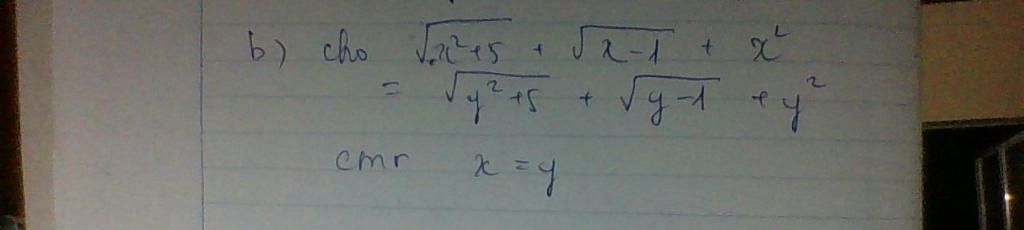 b) cho √x²+5 + √x-1 + x²
= √y²+5 + √y-1 + y²
cmr x = y